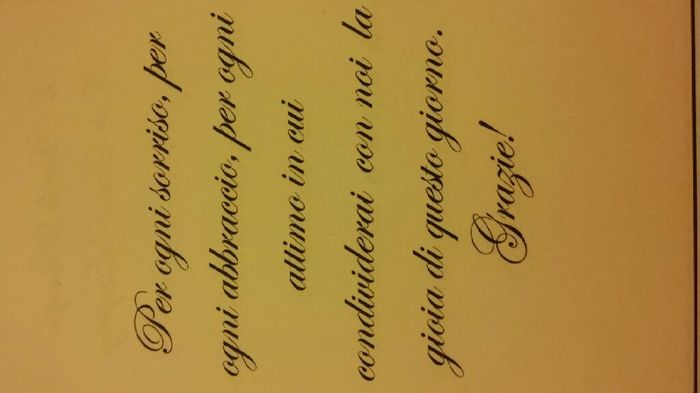 Per ogni sorriso, per
ogni abbraccio, per ogni
attimo in cui
condividerai con noi la
gioia di questo giorno.
Grazie!